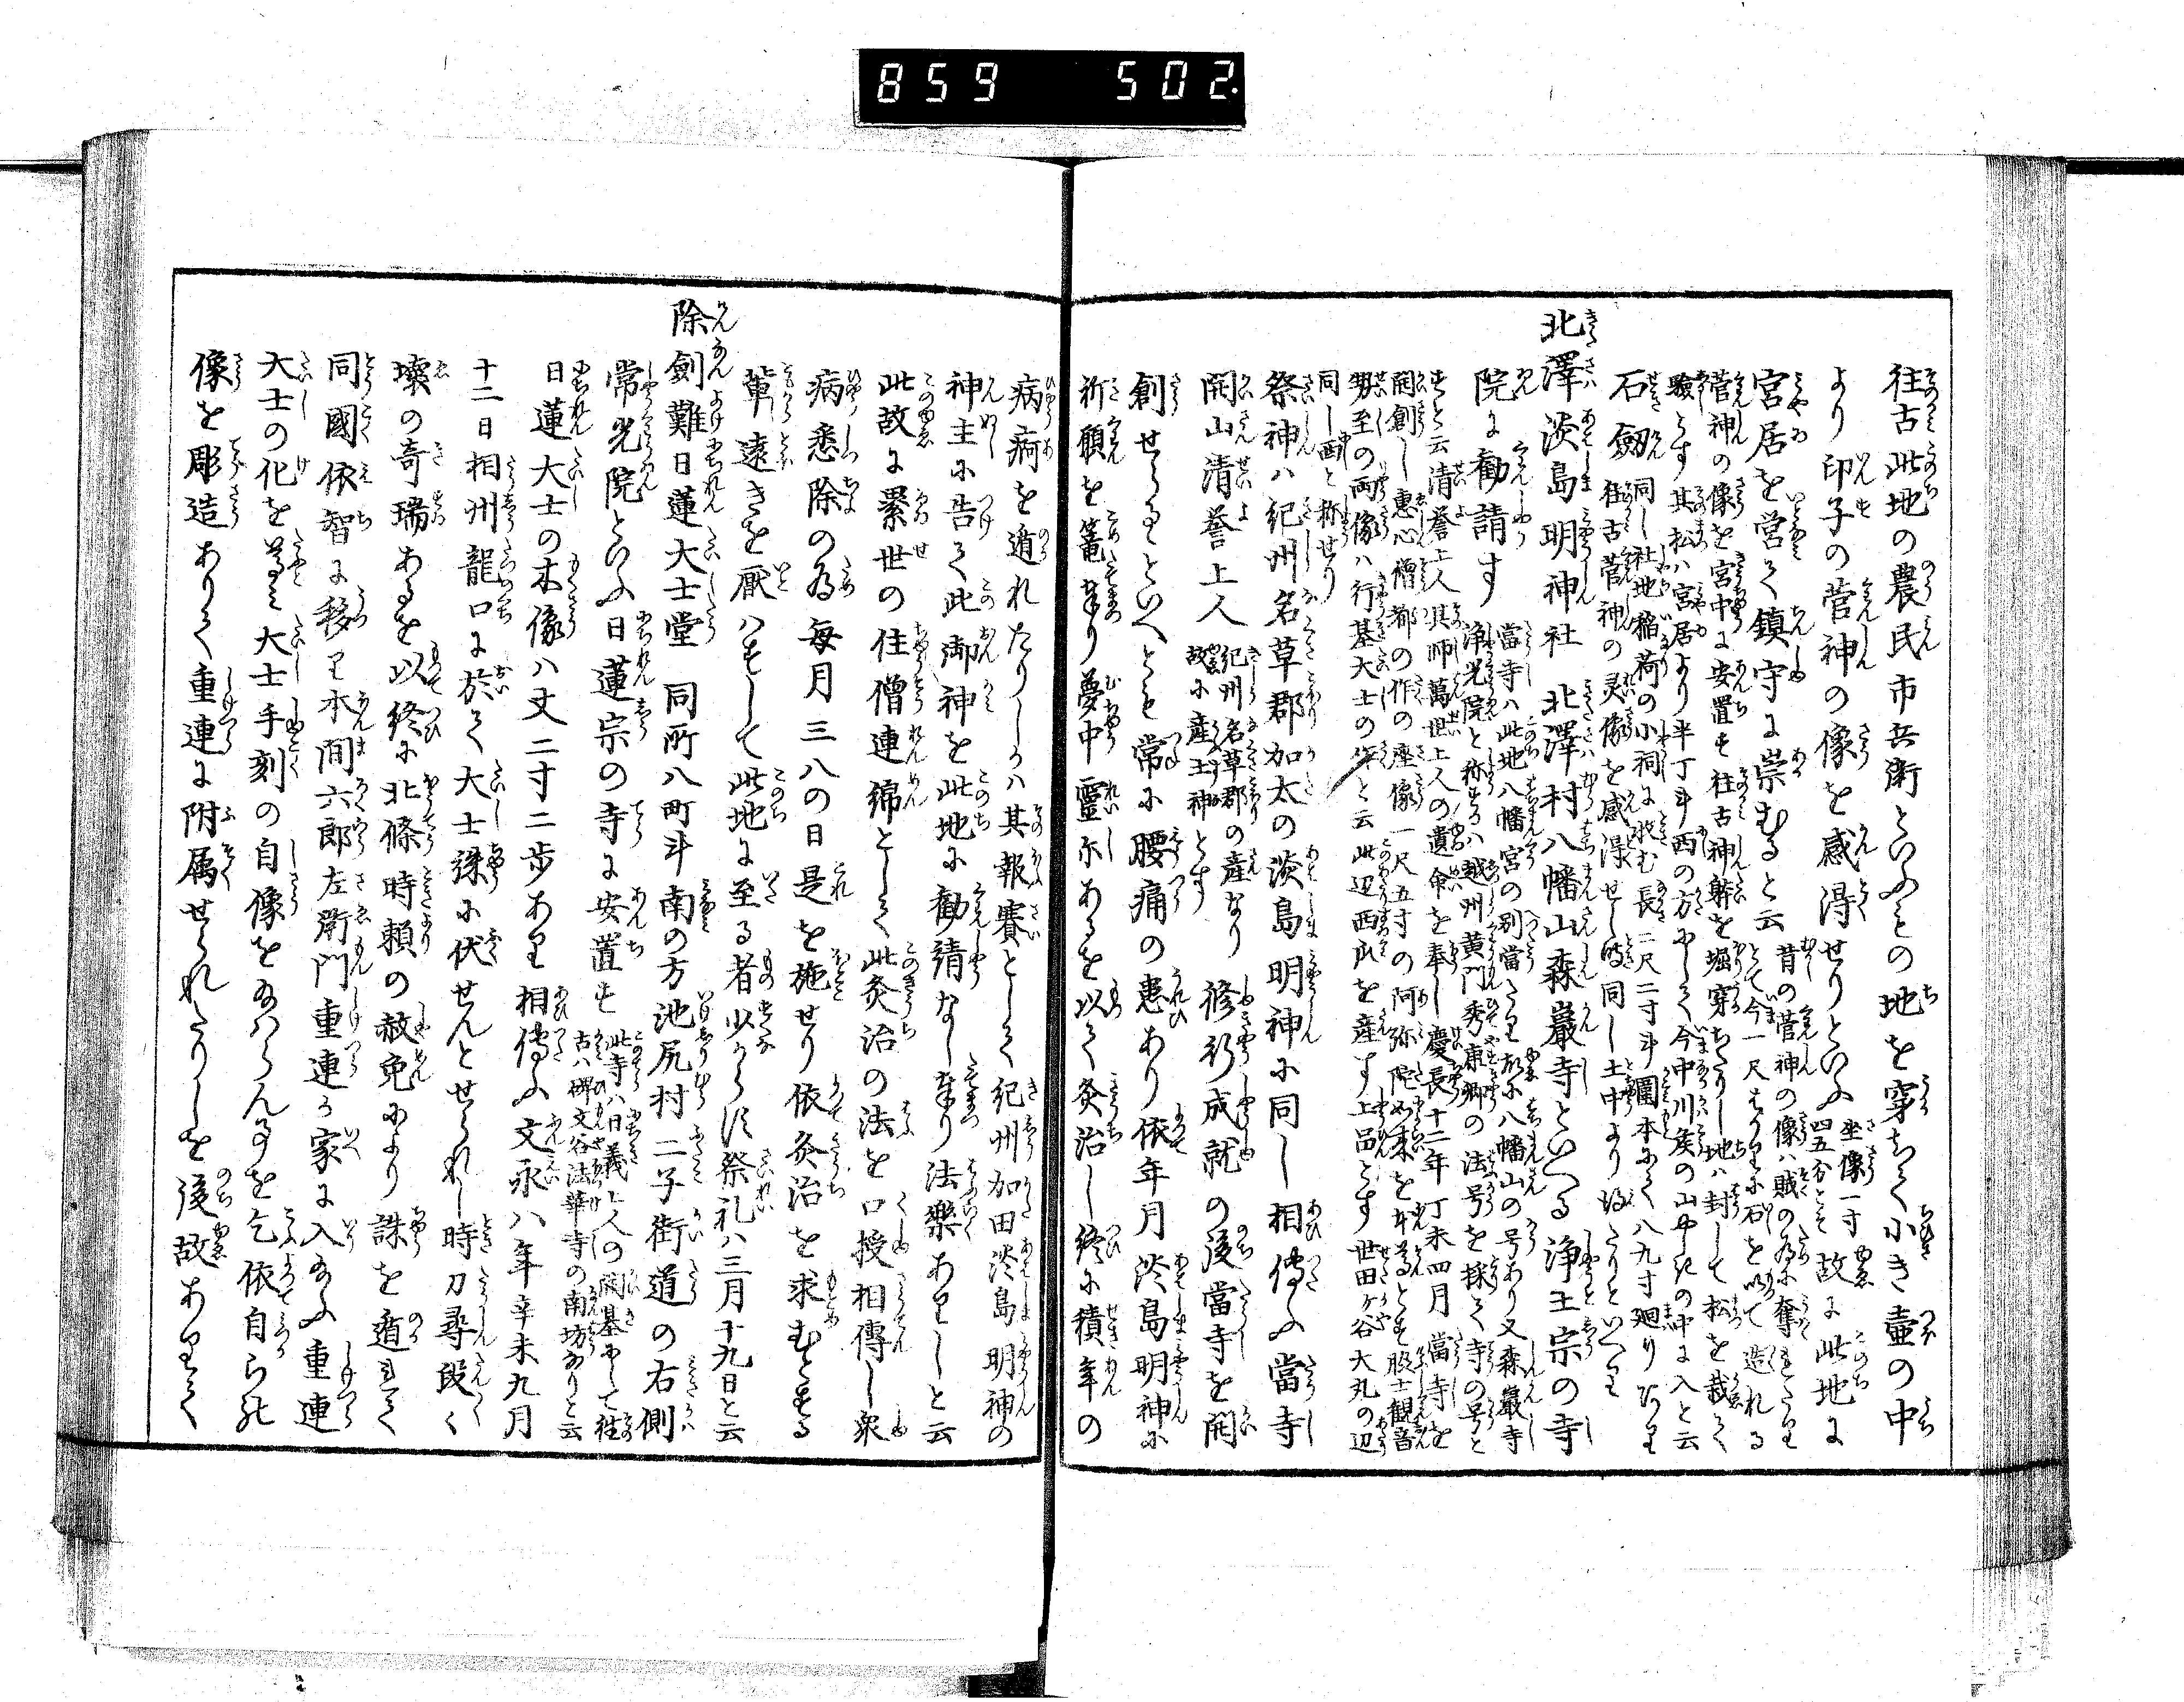 859 502.
往古此地の農民市兵衛といふもの地を穿ちて小き壺の中
より印子の菅神の像を感得せりといふ 坐像一寸四五分とそ 故に此地に
宮居を営て鎮守に崇むると云 昔の菅神の像ハ賊の為に奪れたりとて今一尺はかりに石を以て造れる
菅神の像を宮中に安置す往古神躰を堀穿ちたりし地ハ封して松を栽て
験とす其松ハ宮居より半丁斗西の方にして今中川矦の山やしきの中に入と云
石劔 同し社地稲荷の小祠に收む長二尺二寸斗圍本にて八九寸廻りあり
往古菅神の灵像を感得せし時同し土中より得たりといへり
北澤淡島明神社 北澤村八幡山森巖寺といへる浄土宗の寺
院に勸請す 當寺ハ此地八幡宮の別當たり故に八幡山の号あり又森巖寺
浄光院と称するハ越州黄門秀康卿の法号を採て寺の号と
すと云清誉上人其師萬世上人の遺命を奉し慶長十二年丁未四月當寺を
開創し惠心僧都の作の座像一尺五寸の阿弥陀如来を本尊とす脇士観音
勢至の両像ハ行基大士の作と云此辺西瓜を産す上品とす世田ヶ谷大丸の辺
同し西と称せり
祭神ハ紀州名草郡加太の淡島明神に同し相傳ふ當寺
開山清誉上人 紀州名草郡の産なり故に産土神とす 修行成就の後當寺を開
創せらるといへとも常に腰痛の患あり依年月淡島明神に
祈願を籠奉り夢中靈示あるを以て灸治し終に積年の
病痾を遁れたりしかハ其報賽として紀州加田淡島明神の
神主に告て此御神を此地に勸請なし奉り法樂ありしと云
此故に累世の住僧連綿として此灸治の法を口授相傳し衆
病悉除の為毎月三八の日是を施せり依灸治を求むとする
輩遠きを厭ハすして此地に至る者少からす祭礼ハ三月十九日と云
除劍難日蓮大士堂 同所八町斗南の方池尻村二子街道の右側
常光院といふ日蓮宗の寺に安置す 此寺ハ日義上人の開基にして往古ハ碑文谷法華寺の南坊なりと云
日蓮大士の木像ハ丈二寸二歩あり 相傳ふ文永八年辛未九月
十二日相州龍口に於て大士誅に伏せんとせられし時刀尋段〱
壊の奇瑞あるを以終に北條時頼の赦免により誅を遁れて
同國依智に移り本間六郎左衛門重連か家に入給ふ重連
大士の化を尊み大士手刻の自像を給ハらん事を乞依自ら此
像を彫造ありて重連に附属せられたりしを後故ありて